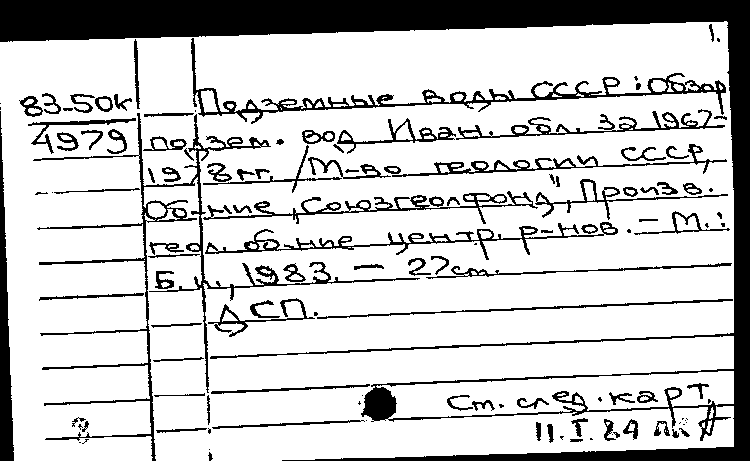 1.
83-50к Подземные воды СССР: Обзор
4979 подзем. вод Иван. обл. за 1967-
1978 гг. / М-во геологии СССР,
Об-ние „Союзгеолфонд", Произв.
геол. об-ние центр. р-нов. – М.:
Б. и., 1983. – 27 см.
ДСП.
См. след. карт.
8
11.I.84